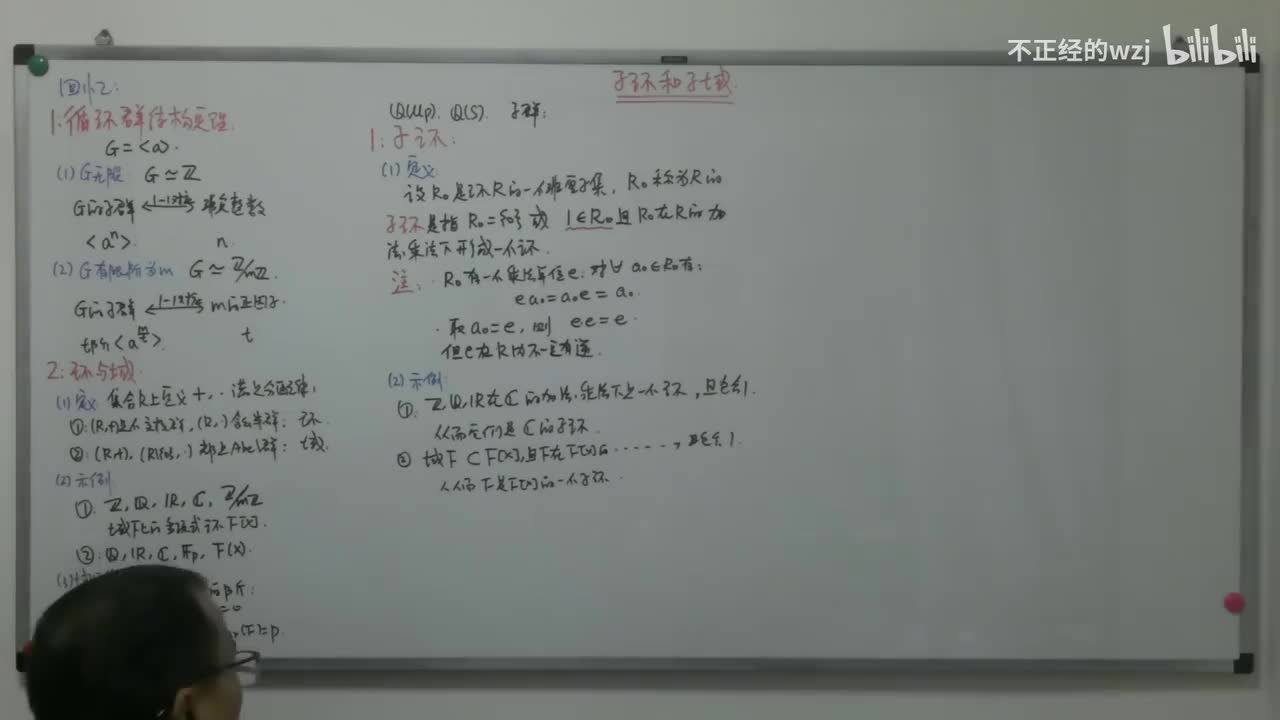 不正经的wzj bilibili
子环和子域.
回忆:
1:循环群结构定理.
G=<a>.
(1) G无限 G≃ℤ
G的子群 ⟷ 1-1对应 非负整数
<aⁿ>. n.
(2) G有限阶为m G≃ℤ/mℤ.
G的子群 ⟷ 1-1对应 m的正因子.
t
2:环与域.
(1)定义 集合R上定义+,· 满足分配律:
①:(R,+)是个交换群,(R,·)含幺半群:环.
②:(R,+),(R\{0},·)都是Abel群:域.
(2)示例
①:ℤ,ℚ,ℝ,ℂ,ℤ/mℤ
域F上的多项式环F[x].
②:ℚ,ℝ,ℂ,𝔽p,F(x).
=0
=p.
子群:
1:子环:
(1)定义
设R₀是环R的一个非空子集, R₀称为R的
子环是指R₀={0}或 1∈R₀且R₀在R的加
法,乘法下形成一个环.
注: · R₀有一个乘法单位e.对∀ a₀∈R₀有:
ea₀=a₀e=a₀.
· 取a₀=e,则 ee=e.
但e在R内不一定有逆.
(2)示例:
①:ℤ,ℚ,ℝ在ℂ的加法,乘法下是一个环,且包含1.
从而它们是ℂ的子环.
② 域F⊂F[x],且F在F[x]的······,且包含1.
从而F是F[x]的一个子环.